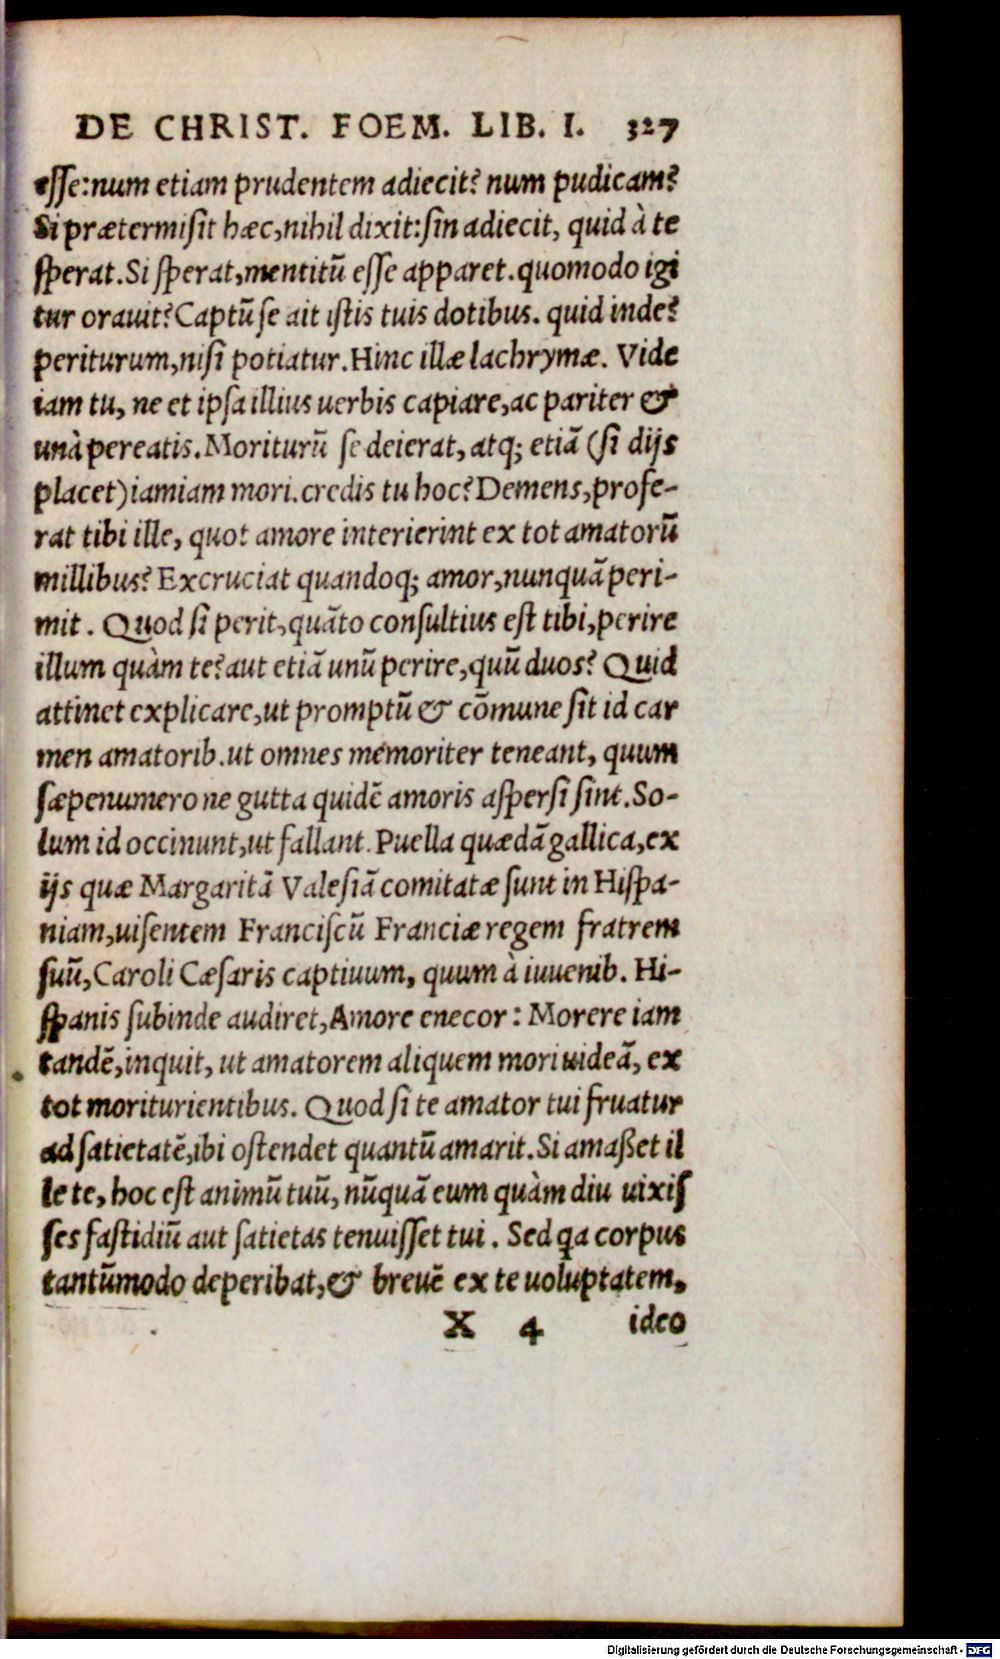 DE CHRIST. FOEM. LIB. I. 327
esse: num etiam prudentem adiecit? num pudicam?
Si prætermisit hæc, nihil dixit: sin adiecit, quid à te
sperat. Si sperat, mentitũ esse apparet. quomodo igi
tur orauit? Captũ se ait istis tuis dotibus. quid inde?
periturum, nisi potiatur. Hinc illæ lachrymæ. Vide
iam tu, ne et ipsa illius uerbis capiare, ac pariter &
unà pereatis. Moriturũ se deierat, atq; etiã (si dijs
placet) iamiam mori. credis tu hoc? Demens, profe-
rat tibi ille, quot amore interierint ex tot amatorũ
millibus? Excruciat quandoq; amor, nunquã peri-
mit. Quod si perit, quãto consultius est tibi, perire
illum quàm te? aut etiã unũ perire, quũ duos? Quid
attinet explicare, ut promptũ & cõmune sit id car
men amatorib. ut omnes memoriter teneant, quum
sæpenumero ne gutta quidẽ amoris aspersi sint. So-
lum id occinunt, ut fallant. Puella quædã gallica, ex
ijs quæ Margaritã Valesiã comitatæ sunt in Hispa-
niam, uisentem Franciscũ Franciæ regem fratrem
suũ, Caroli Cæsaris captiuum, quum à iuuenib. Hi-
spanis subinde audiret, Amore enecor: Morere iam
tandẽ, inquit, ut amatorem aliquem mori uideã, ex
tot moriturientibus. Quod si te amator tui fruatur
ad satietatẽ, ibi ostendet quantũ amarit. Si amaßet il
le te, hoc est animũ tuũ, nũquã eum quàm diu uixis
ses fastidiũ aut satietas tenuisset tui. Sed q̃a corpus
tantũmodo deperibat, & breuẽ ex te uoluptatem,
X 4 ideo
Digitalisierung gefördert durch die Deutsche Forschungsgemeinschaft - DFG